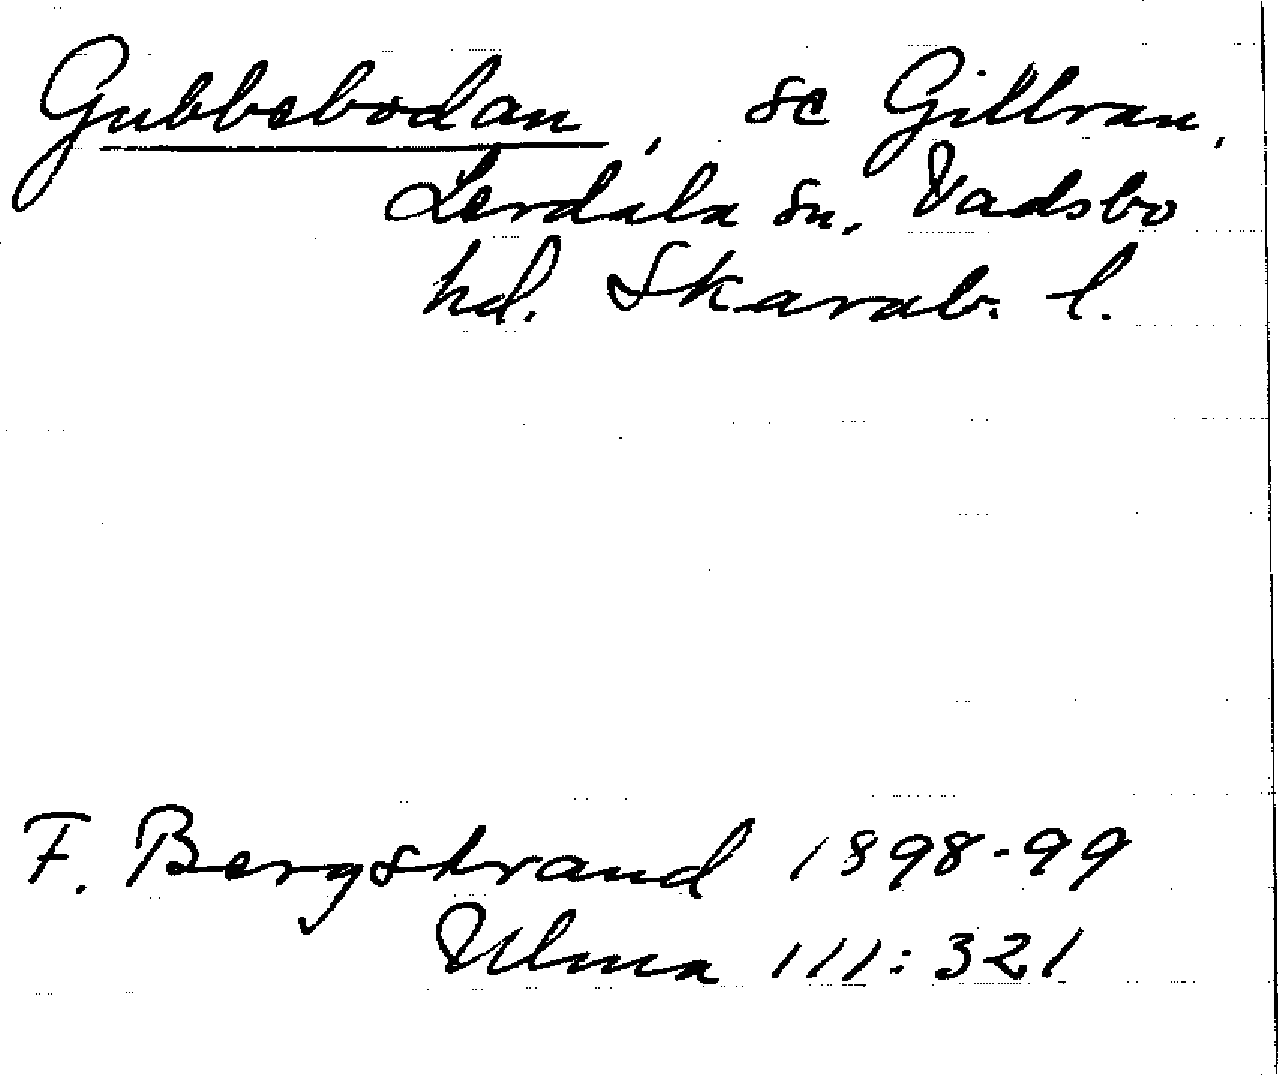 Gubbebodan, se Gillran,
Lerdala sn, Vadsbo
hd. Skarab. l.
F. Bergstrand 1898-99
Ulma 111:321